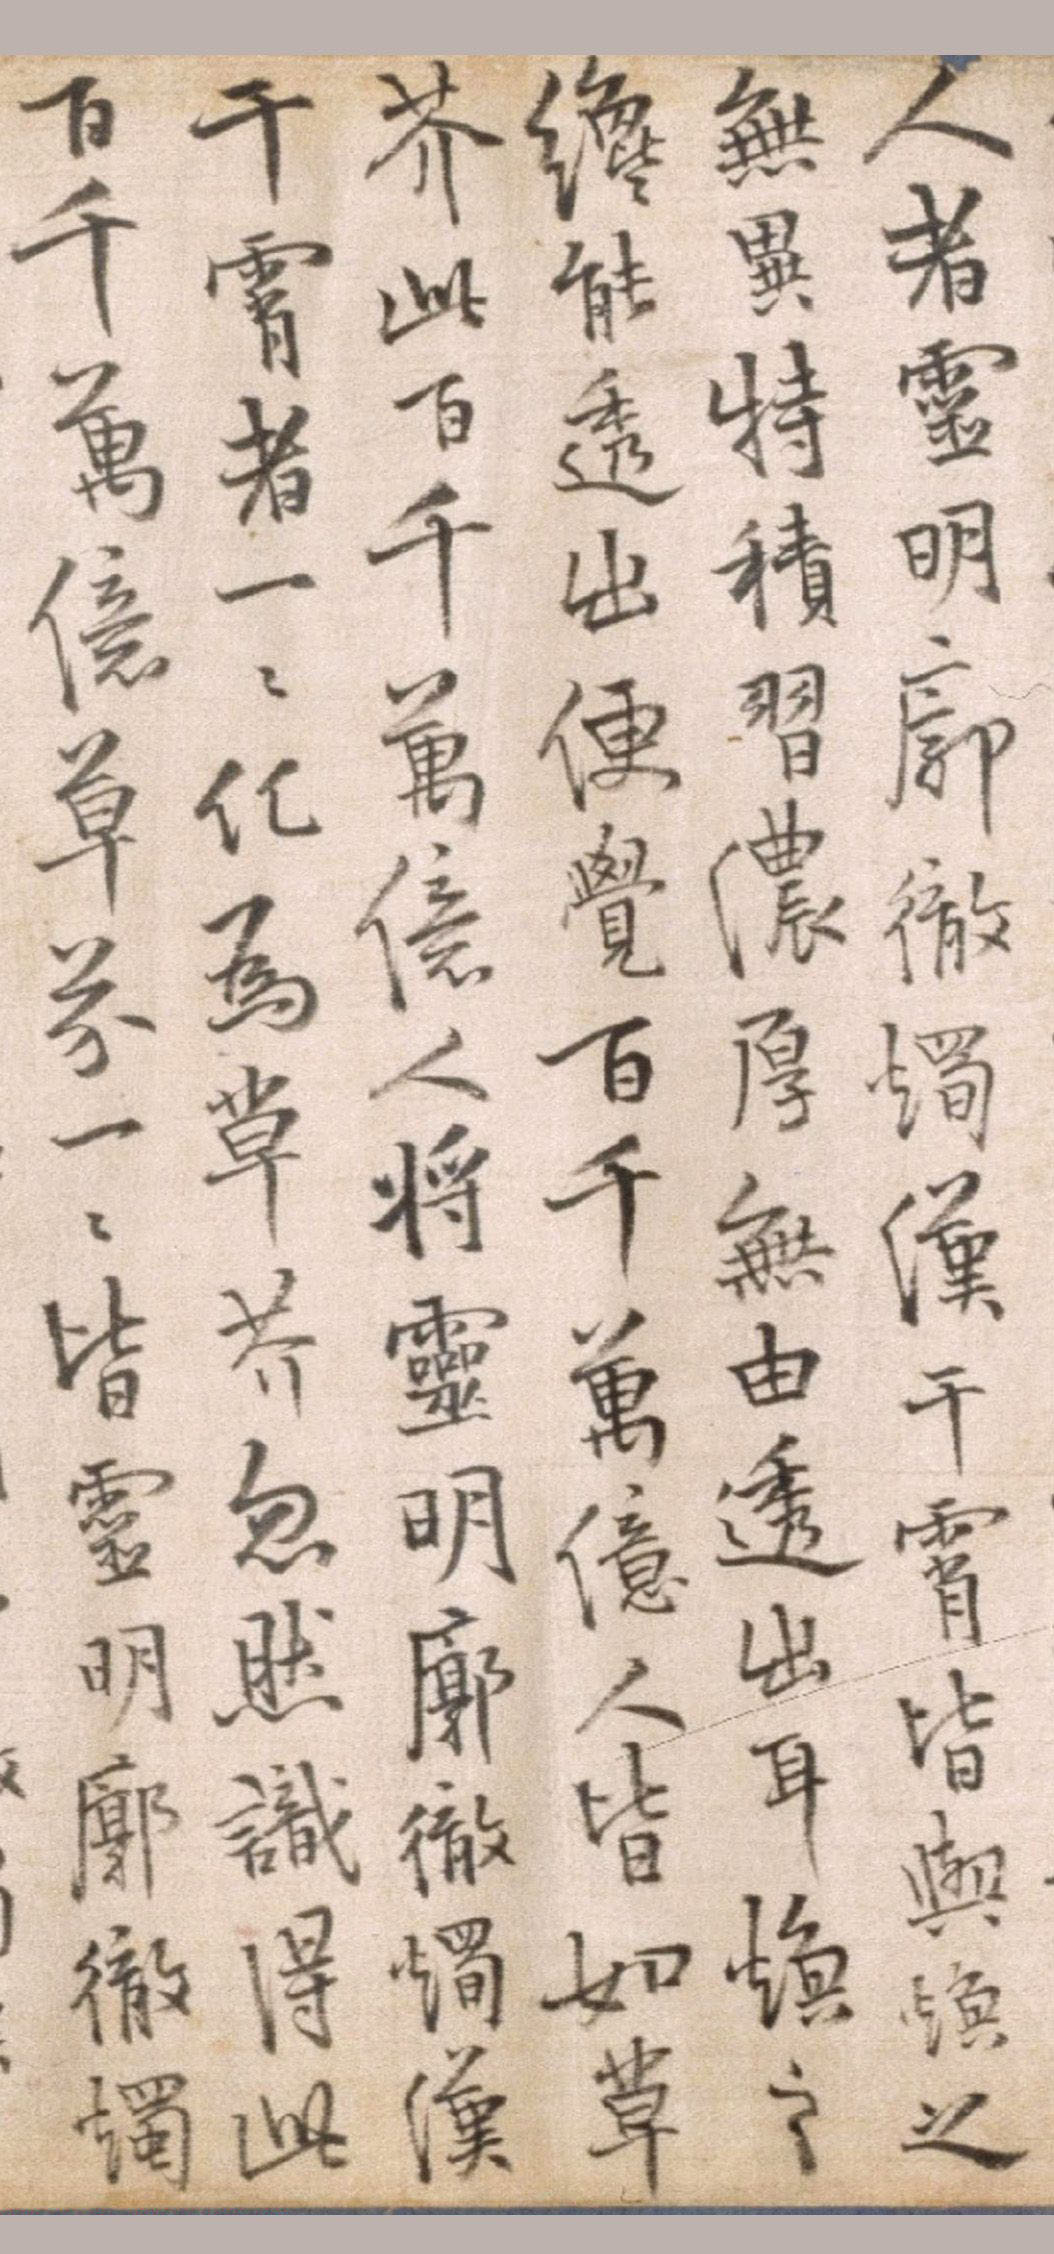 人者靈明廓徹燭漢干霄皆與煥之
無異特積習濃厚無由透出耳煥之
纔能透出便覺百千萬億人皆如草
芥此百千萬億人將靈明廓徹燭漢
干霄者一〻化為草芥忽然識得此
百千萬億草芥一〻皆靈明廓徹燭